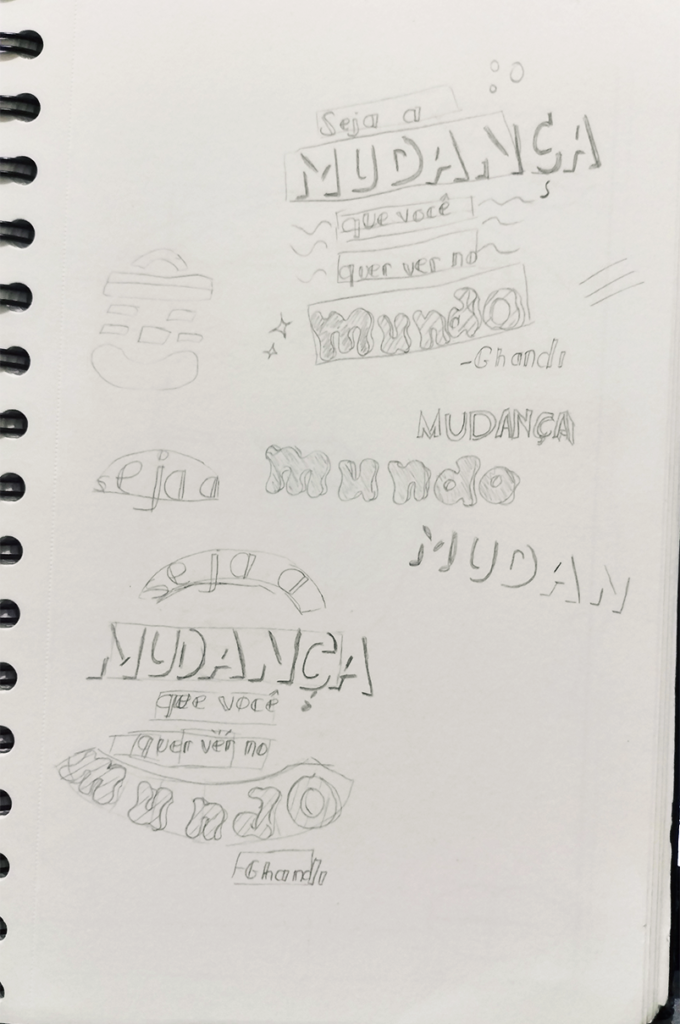 Seja a
MUDANÇA
que você
quer ver no
mundo
-Ghandi
MUDANÇA
seja a
mundo
MUDAN
seja a
MUDANÇA
que você
quer ver no
mundo
-Ghandi